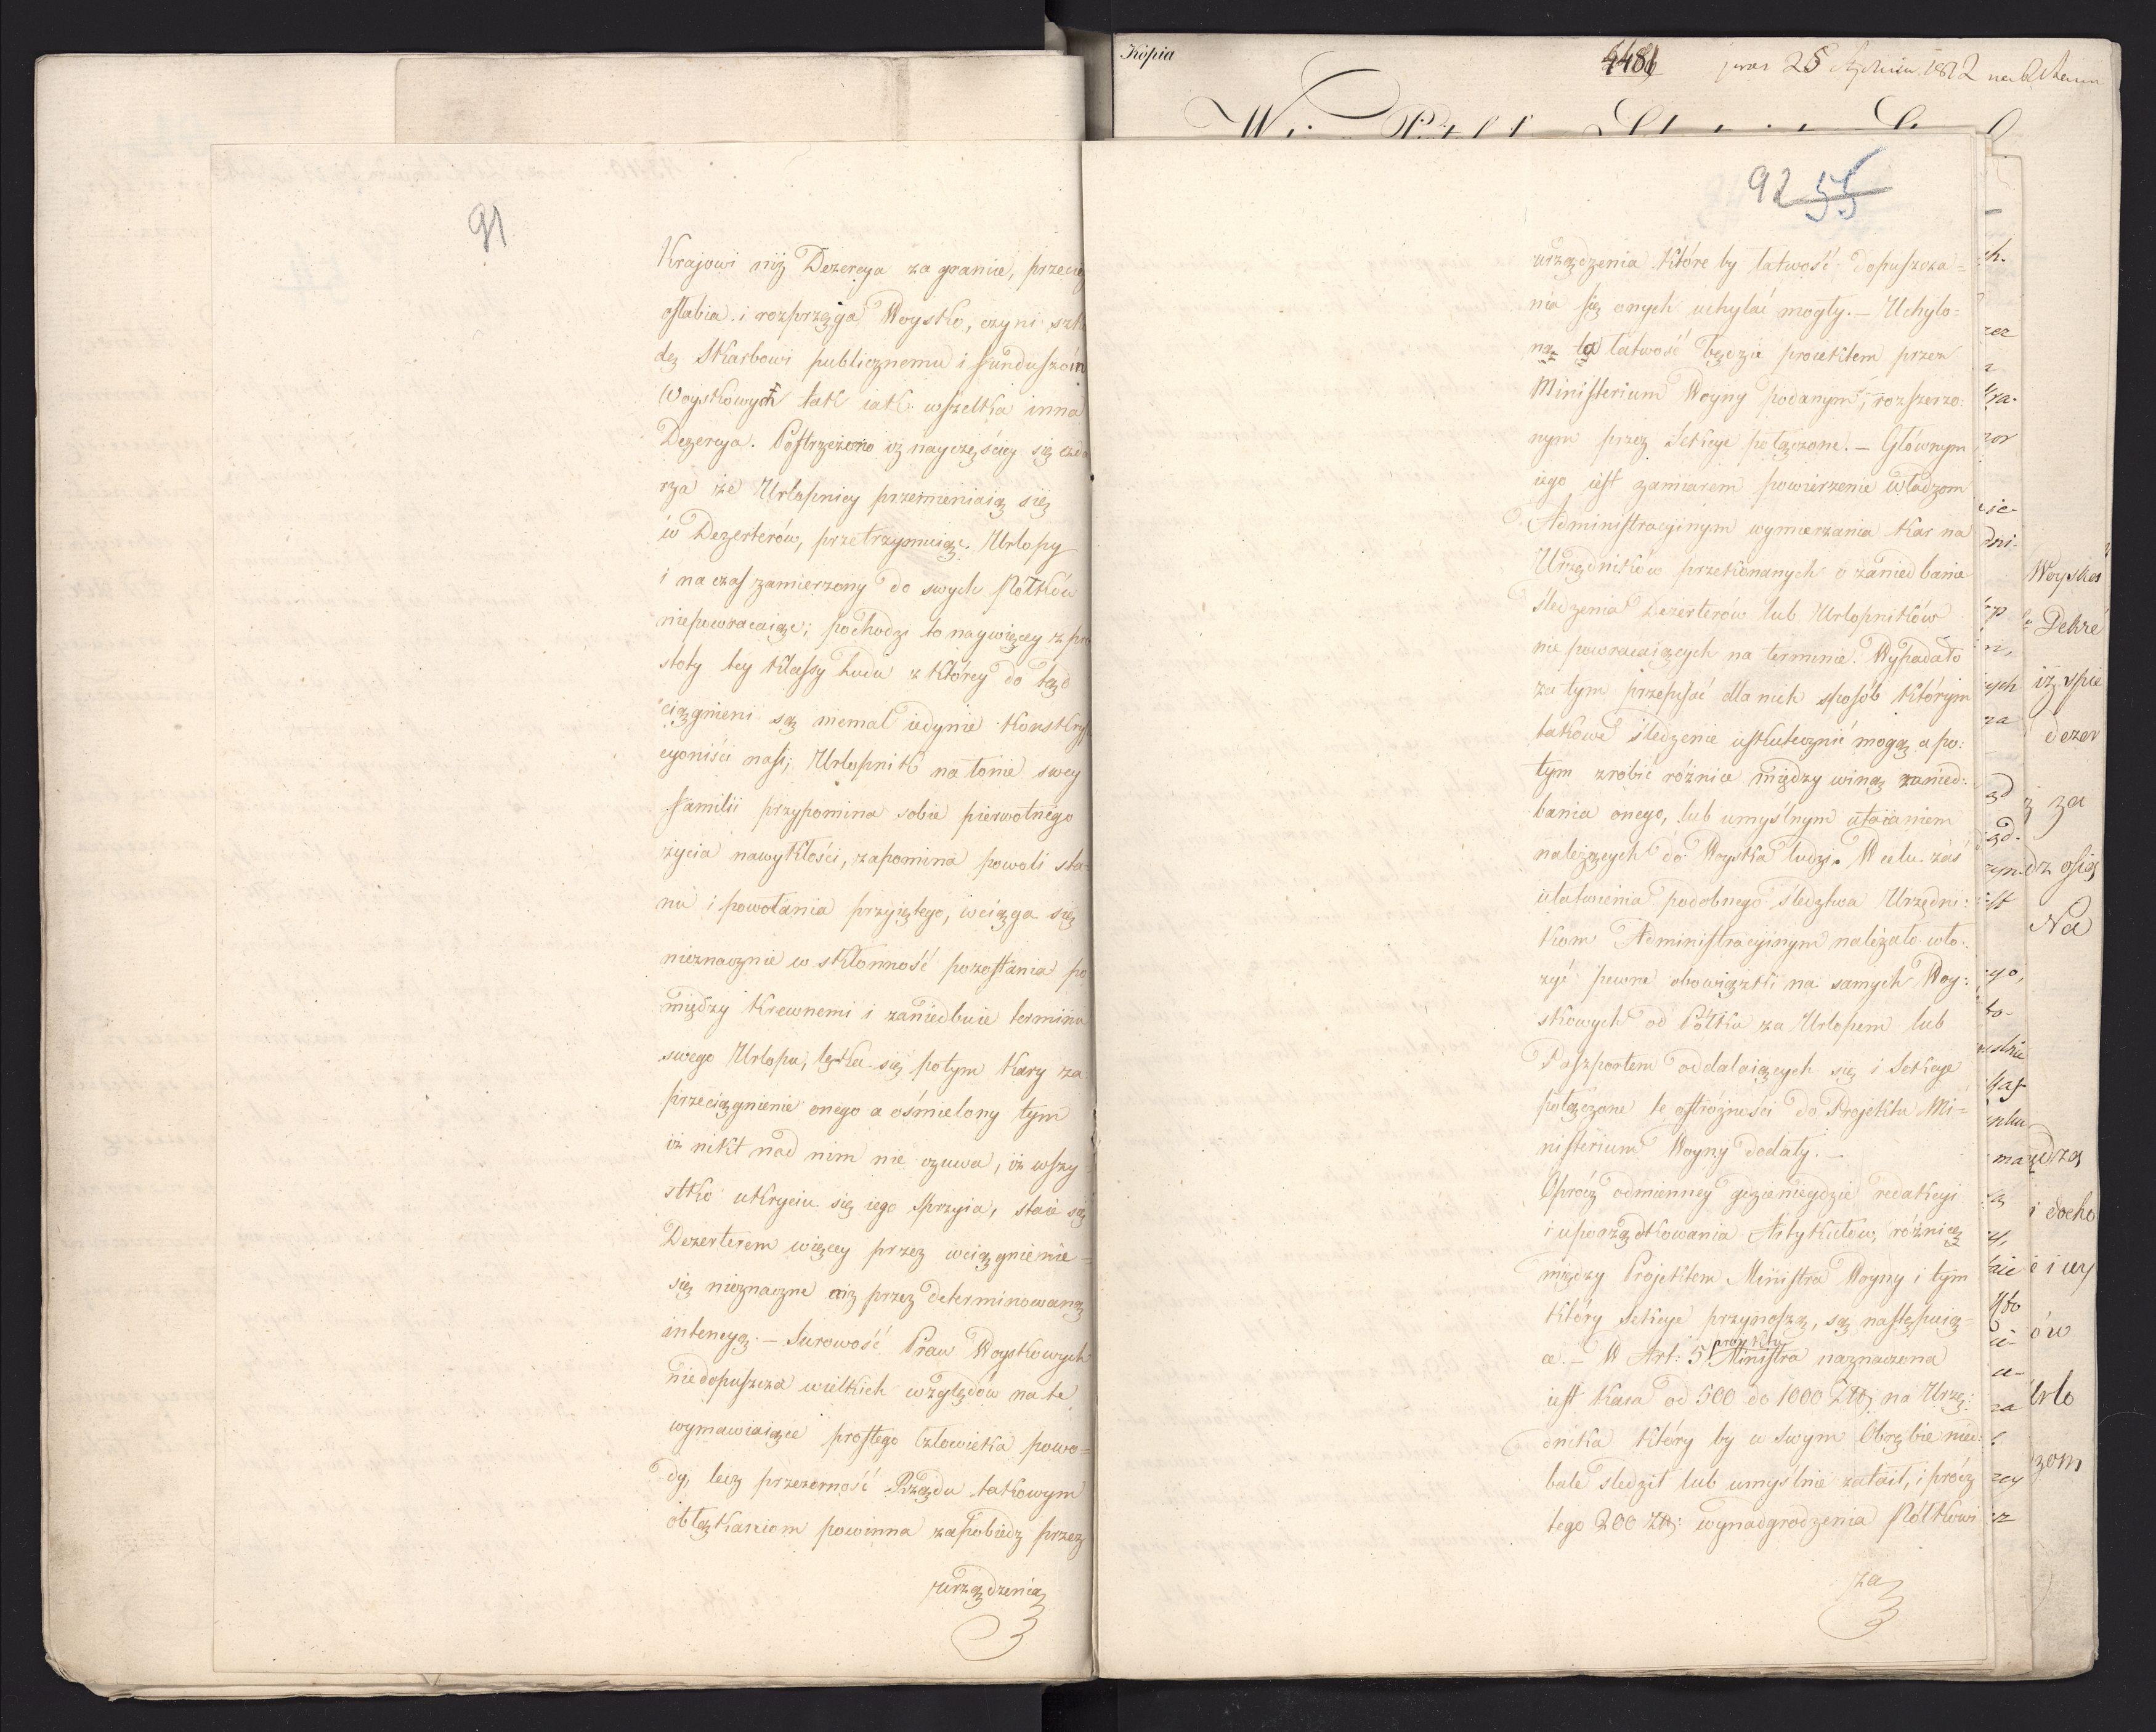 91
Krajowi niż Dezercya za granice, przecię
osłabia i rozprzęga Woysko, czyni szko
dę Skarbowi publicznemu i funduszom
Woyskowym tak iak wszelka inna
Dezercya. Postrzeżono iż nayczęściey się zda
rza że Urlopnicy przemieniaią się
w Dezerterów, przetrzymuiąc Urlopy
i na czas zamierzony do swych Półków
niepowracaiąc; pochodzi to naywięcey z pro
stoty tey klassy Ludu z którey do tąd
ciągnieni są niemal iedynie konskryp
cyoniści nasi; Urlopnik na łonie swey
familii przypomina sobie pierwotnego
życia nawykłości, zapomina powoli sta-
nu i powołania przyiętego, wciąga się
nieznacznie w skłonność pozostania po
między krewnemi i zaniedbuie terminu
swego Urlopu, lęka się potym kary za
przeciągnienie onego a ośmielony tym
iż nikt nad nim nie czuwa, iż wszy
stko ukryciu się iego sprzyia, staie się
Dezerterem więcey przez wciągnienie
się nieznaczne niż przez determinowaną
intencyą. – Surowość Praw Woyskowych
niedopuszcza wielkich względów na te
wymawiaiące prostego człowieka powo=
dy, lecz przezorność Rządu takowym
obłąkaniom powinna zapobiedz przez
urządzenia
Kopia
4481
25 Stycznia 1812
92 55
urządzenia które by łatwość dopuszcza=
nia się onych uchylać mogły. – Uchylo=
ną ta łatwość będzie proiektem przez
Ministerium Woyny podanym, rozszerzo:
nym przez Sekcye połączone. – Głównym
iego iest zamiarem powierzenie władzom
Administracyinym wymierzania kar na
Urzędników przekonanych o zaniedbanie
śledzenia Dezerterów lub Urlopników
nie powracaiących na terminie. Wypadało
za tym przepisać dla nich sposób którym
takowe śledzenie uskutecznić mogą a po:
tym zrobić różnice między winą zanied:
bania onego, lub umyślnym utaianiem
należących do Woyska ludzi. W celu zaś
ułatwienia podobnego śledztwa Urzędni:
kom Administracyinym należało wło:
żyć pewne obowiązki na samych Woy:
skowych od Półku za Urlopem lub
Paszportem oddalaiących się i Sekcye
połączone te ostrożności do Projektu Mi=
nisterium Woyny dodały. –
Oprócz odmienney gdzieniegdzie redakcyi
i uporządkowania Artykułów, różnicę
między Projektem Ministra Woyny i tym
który Sekcye przynoszą, są następuią=
ce. – W Art: 5 proiektu Ministra naznaczona
iest kara od 500 do 1000 Złł na Urzę:
dnika który by w swym Obrębie nied:
bale śledził lub umyślnie zataił, i prócz
tego 200 Złł: wynadgrodzenia Półkowi
za
Woyskos
Dekre
iż spie
dezer
ż za
osią
Na
i docho
ów
Urlo
zom